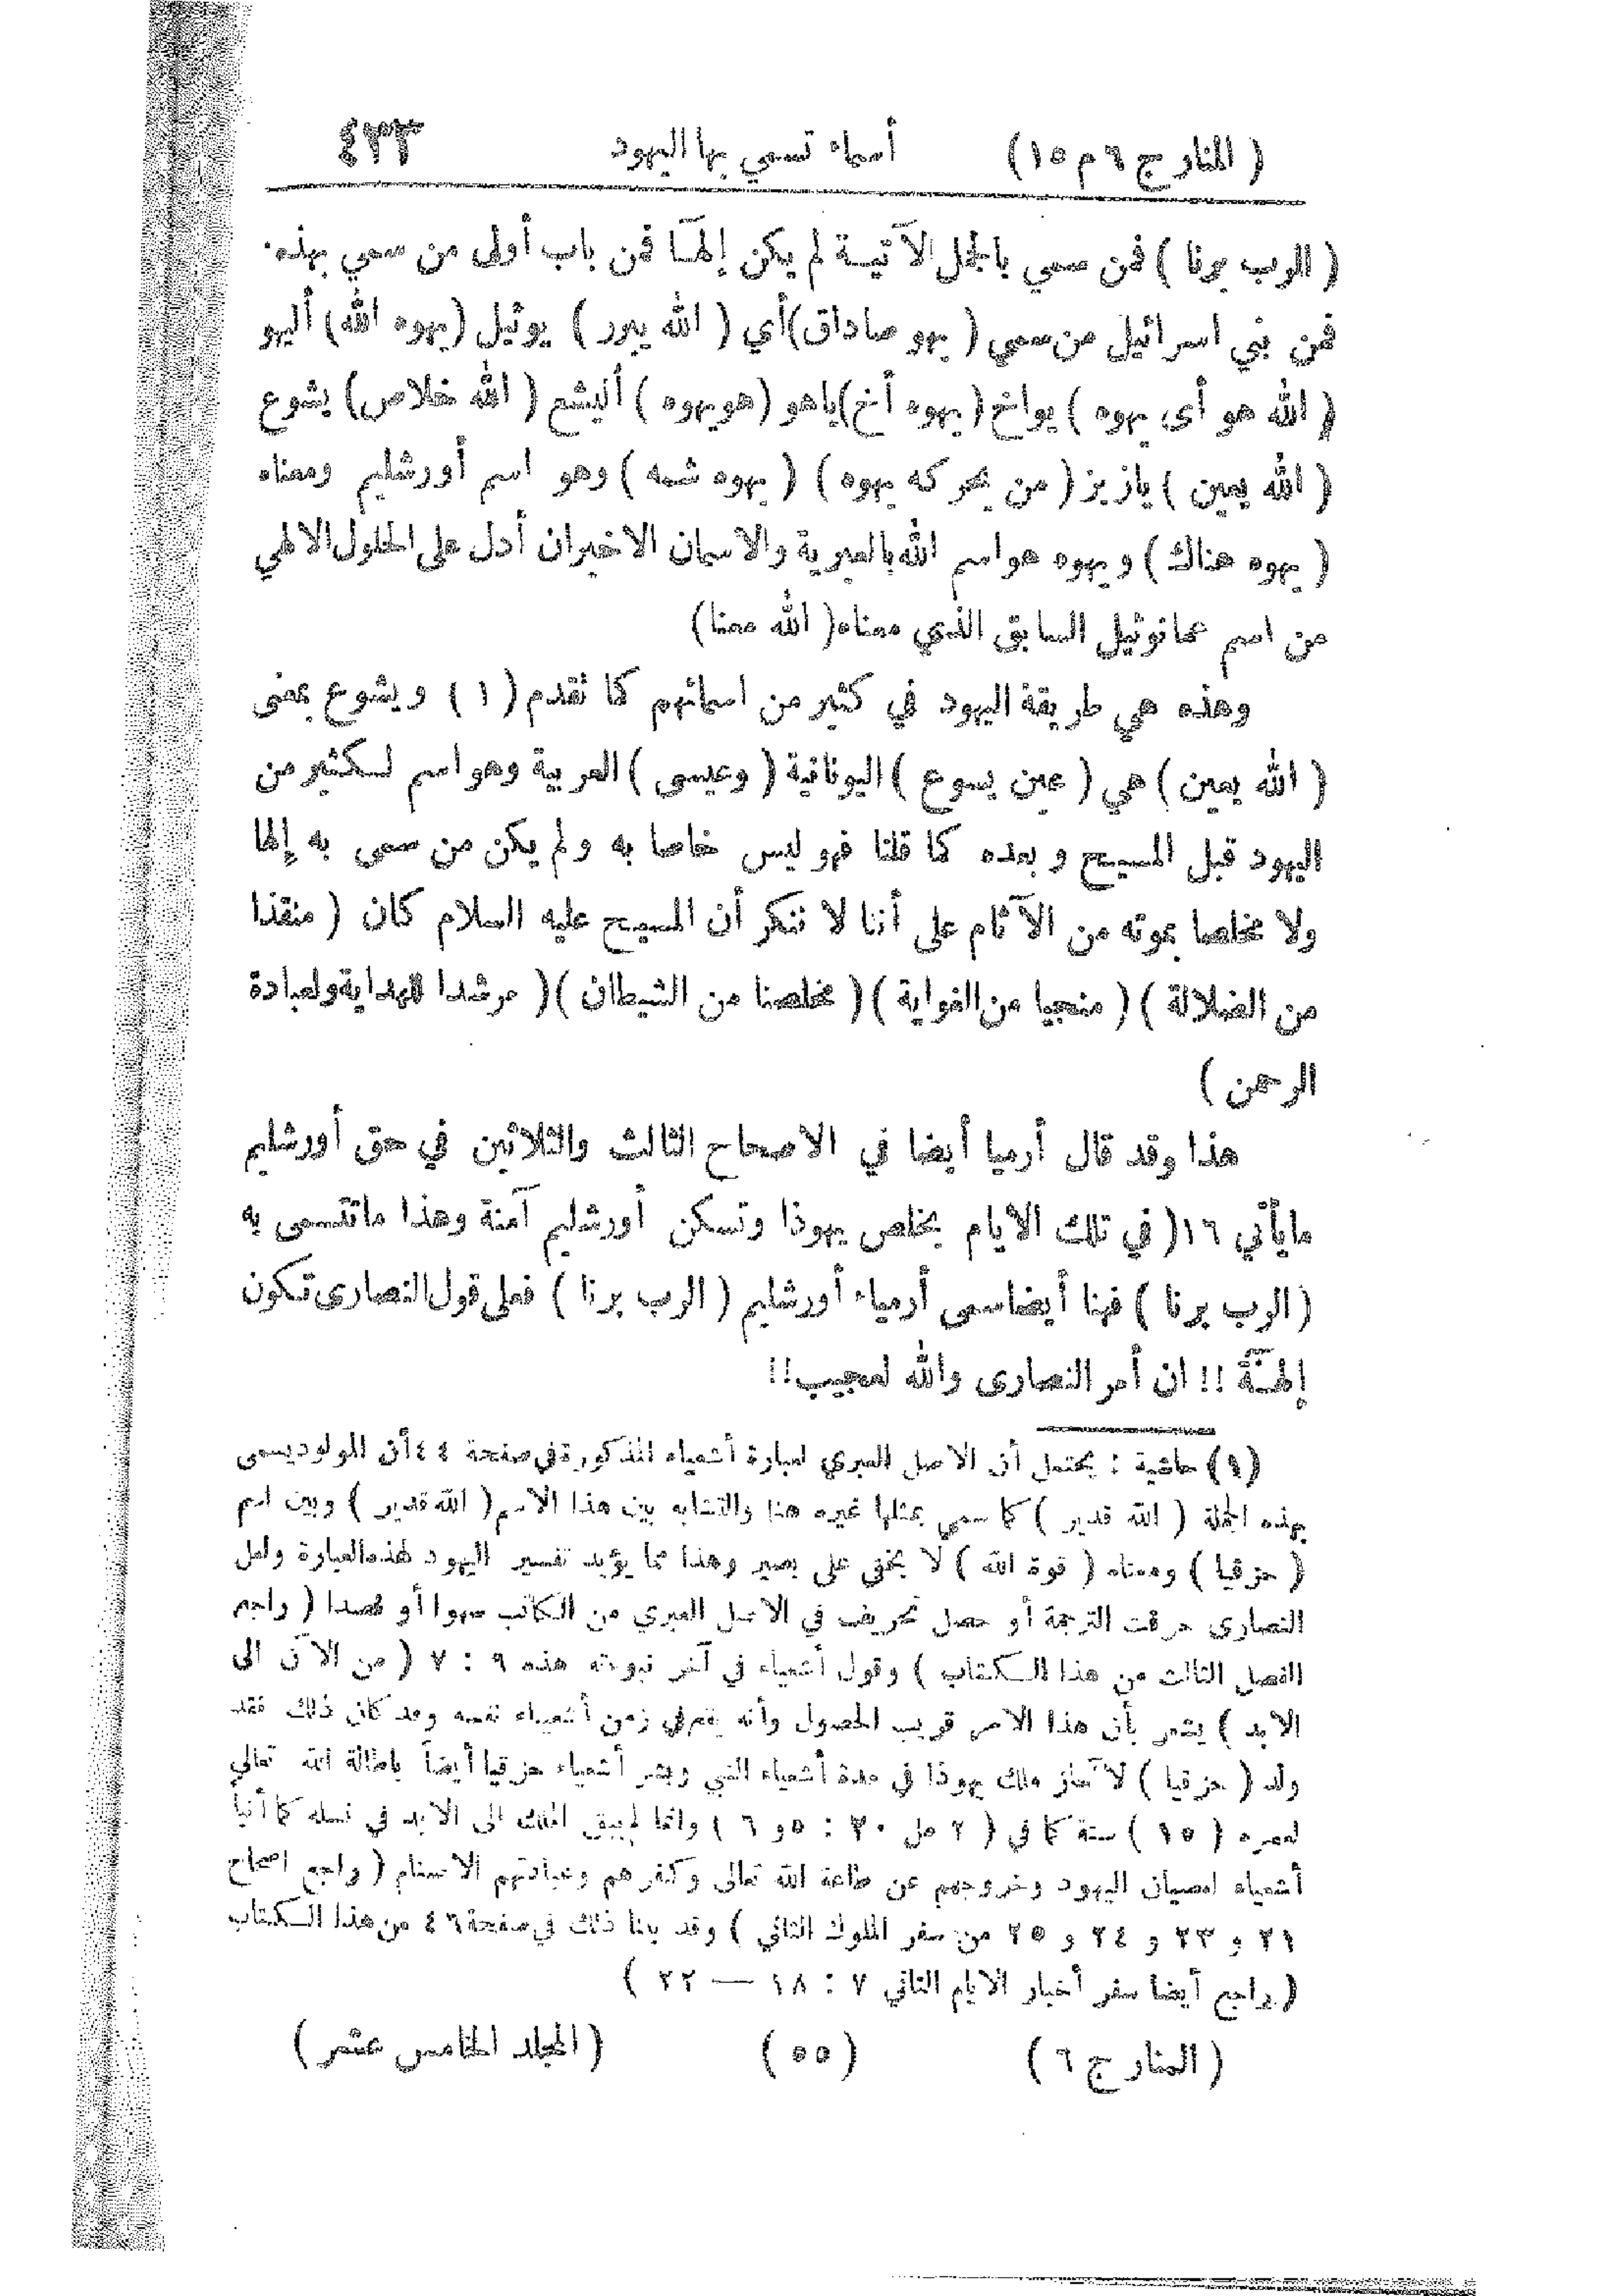 ( المنار ج ٦ م ١٥ ) أسماء تسمي بها اليهود ٤٣٣
( الرب برنا ) فمن سمي بالجمل الآتيـة لم يكن إلهـا فمن باب أولى من سمي بهذه.
فمن بني اسرائيل من سمي ( يهو صاداق ) أي ( الله يبرر ) يوئيل ( يهوه الله ) أليهو
( الله هو أى يهوه ) يواخ ( يهوه أخ ) ياهو ( هو يهوه ) أليشع ( الله خلاص ) يشوع
( الله يمين ) يازيز ( من يحركه يهوه ) ( يهوه شمه ) وهو اسم أورشليم ومعناه
( يهوه هناك ) ويهوه هو اسم الله بالعبرية والاسمان الاخيران أدل على الحلول الالهي
من اسم عمانوئيل السابق الذي معناه ( الله معنا )
وهذه هي طريقة اليهود في كثير من اسمائهم كما تقدم ( ١ ) ويشوع بمعنى
( الله يمين ) هي ( عين يسوع ) اليونانية ( وعيسى ) العربية وهو اسم لـكثير من
اليهود قبل المسيح وبعده كما قلنا فهو ليس خاصا به ولم يكن من سمى به إلها
ولا مخلصا بموته من الآثام على أننا لا ننكر أن المسيح عليه السلام كان ( منقذا
من الضلالة ) ( منجيا من الغواية ) ( مخلصنا من الشيطان ) ( مرشدا للهداية ولعبادة
الرحمن )
هذا وقد قال أرميا أيضا في الاصحاح الثالث والثلاثين في حق أورشليم
مايأتي ١٦ ( في تلك الايام يخلص يهوذا وتسكن أورشليم آمنة وهذا ماتتسمى به
( الرب برنا ) فهنا أيضا سمى أرمياء أورشليم ( الرب برنا ) فعلى قول النصارى تكون
إلهـة !! ان أمر النصارى والله لعجيب !!
( ١ ) حاشية : يحتمل أن الاصل العبري لعبارة أشعياء المذكورة في صفحة ٤٤ أن المولود يسمى
بهذه الجملة ( الله قدير ) كما سمي بمثلها غيره هنا والتشابه بين هذا الاسم ( الله قدير ) وبين اسم
( حزقيا ) ومعناه ( قوة الله ) لا يخفى على بصير وهذا مما يؤيد تفسير اليهود لهذه العبارة ولعل
النصارى حرفت الترجمة أو حصل تحريف في الاصل العبري من الكاتب سهوا أو قصدا ( راجع
الفصل الثالث من هذا الـكتاب ) وقول أشعياء في آخر نبوته هذه ٩ : ٧ ( من الآن الى
الابد ) يشعر بأن هذا الامر قريب الحصول وأنه يقع في زمن أشعياء نفسه وقد كان ذلك فقد
ولد ( حزقيا ) لآحاز ملك يهوذا في مدة أشعياء النبي وبشر أشعياء حزقيا أيضاً باطالة الله تعالى
لعمره ( ١٥ ) سنة كما في ( ٢ مل ٢٠ : ٥ و ٦ ) وانما لم يبق الملك الى الابد في نسله كما أنبأ
أشعياء لعصيان اليهود وخروجهم عن طاعة الله تعالى وكفرهم وعبادتهم الاصنام ( راجع اصحاح
٢١ و ٢٣ و ٢٤ و ٢٥ من سفر الملوك الثاني ) وقد بينا ذلك في صفحة ٤٦ من هذا الـكتاب
( راجع أيضا سفر أخبار الايام الثاني ٧ : ١٨ — ٢٢ )
( المنار ج ٦ ) ( ٥٥ ) ( المجلد الخامس عشر )